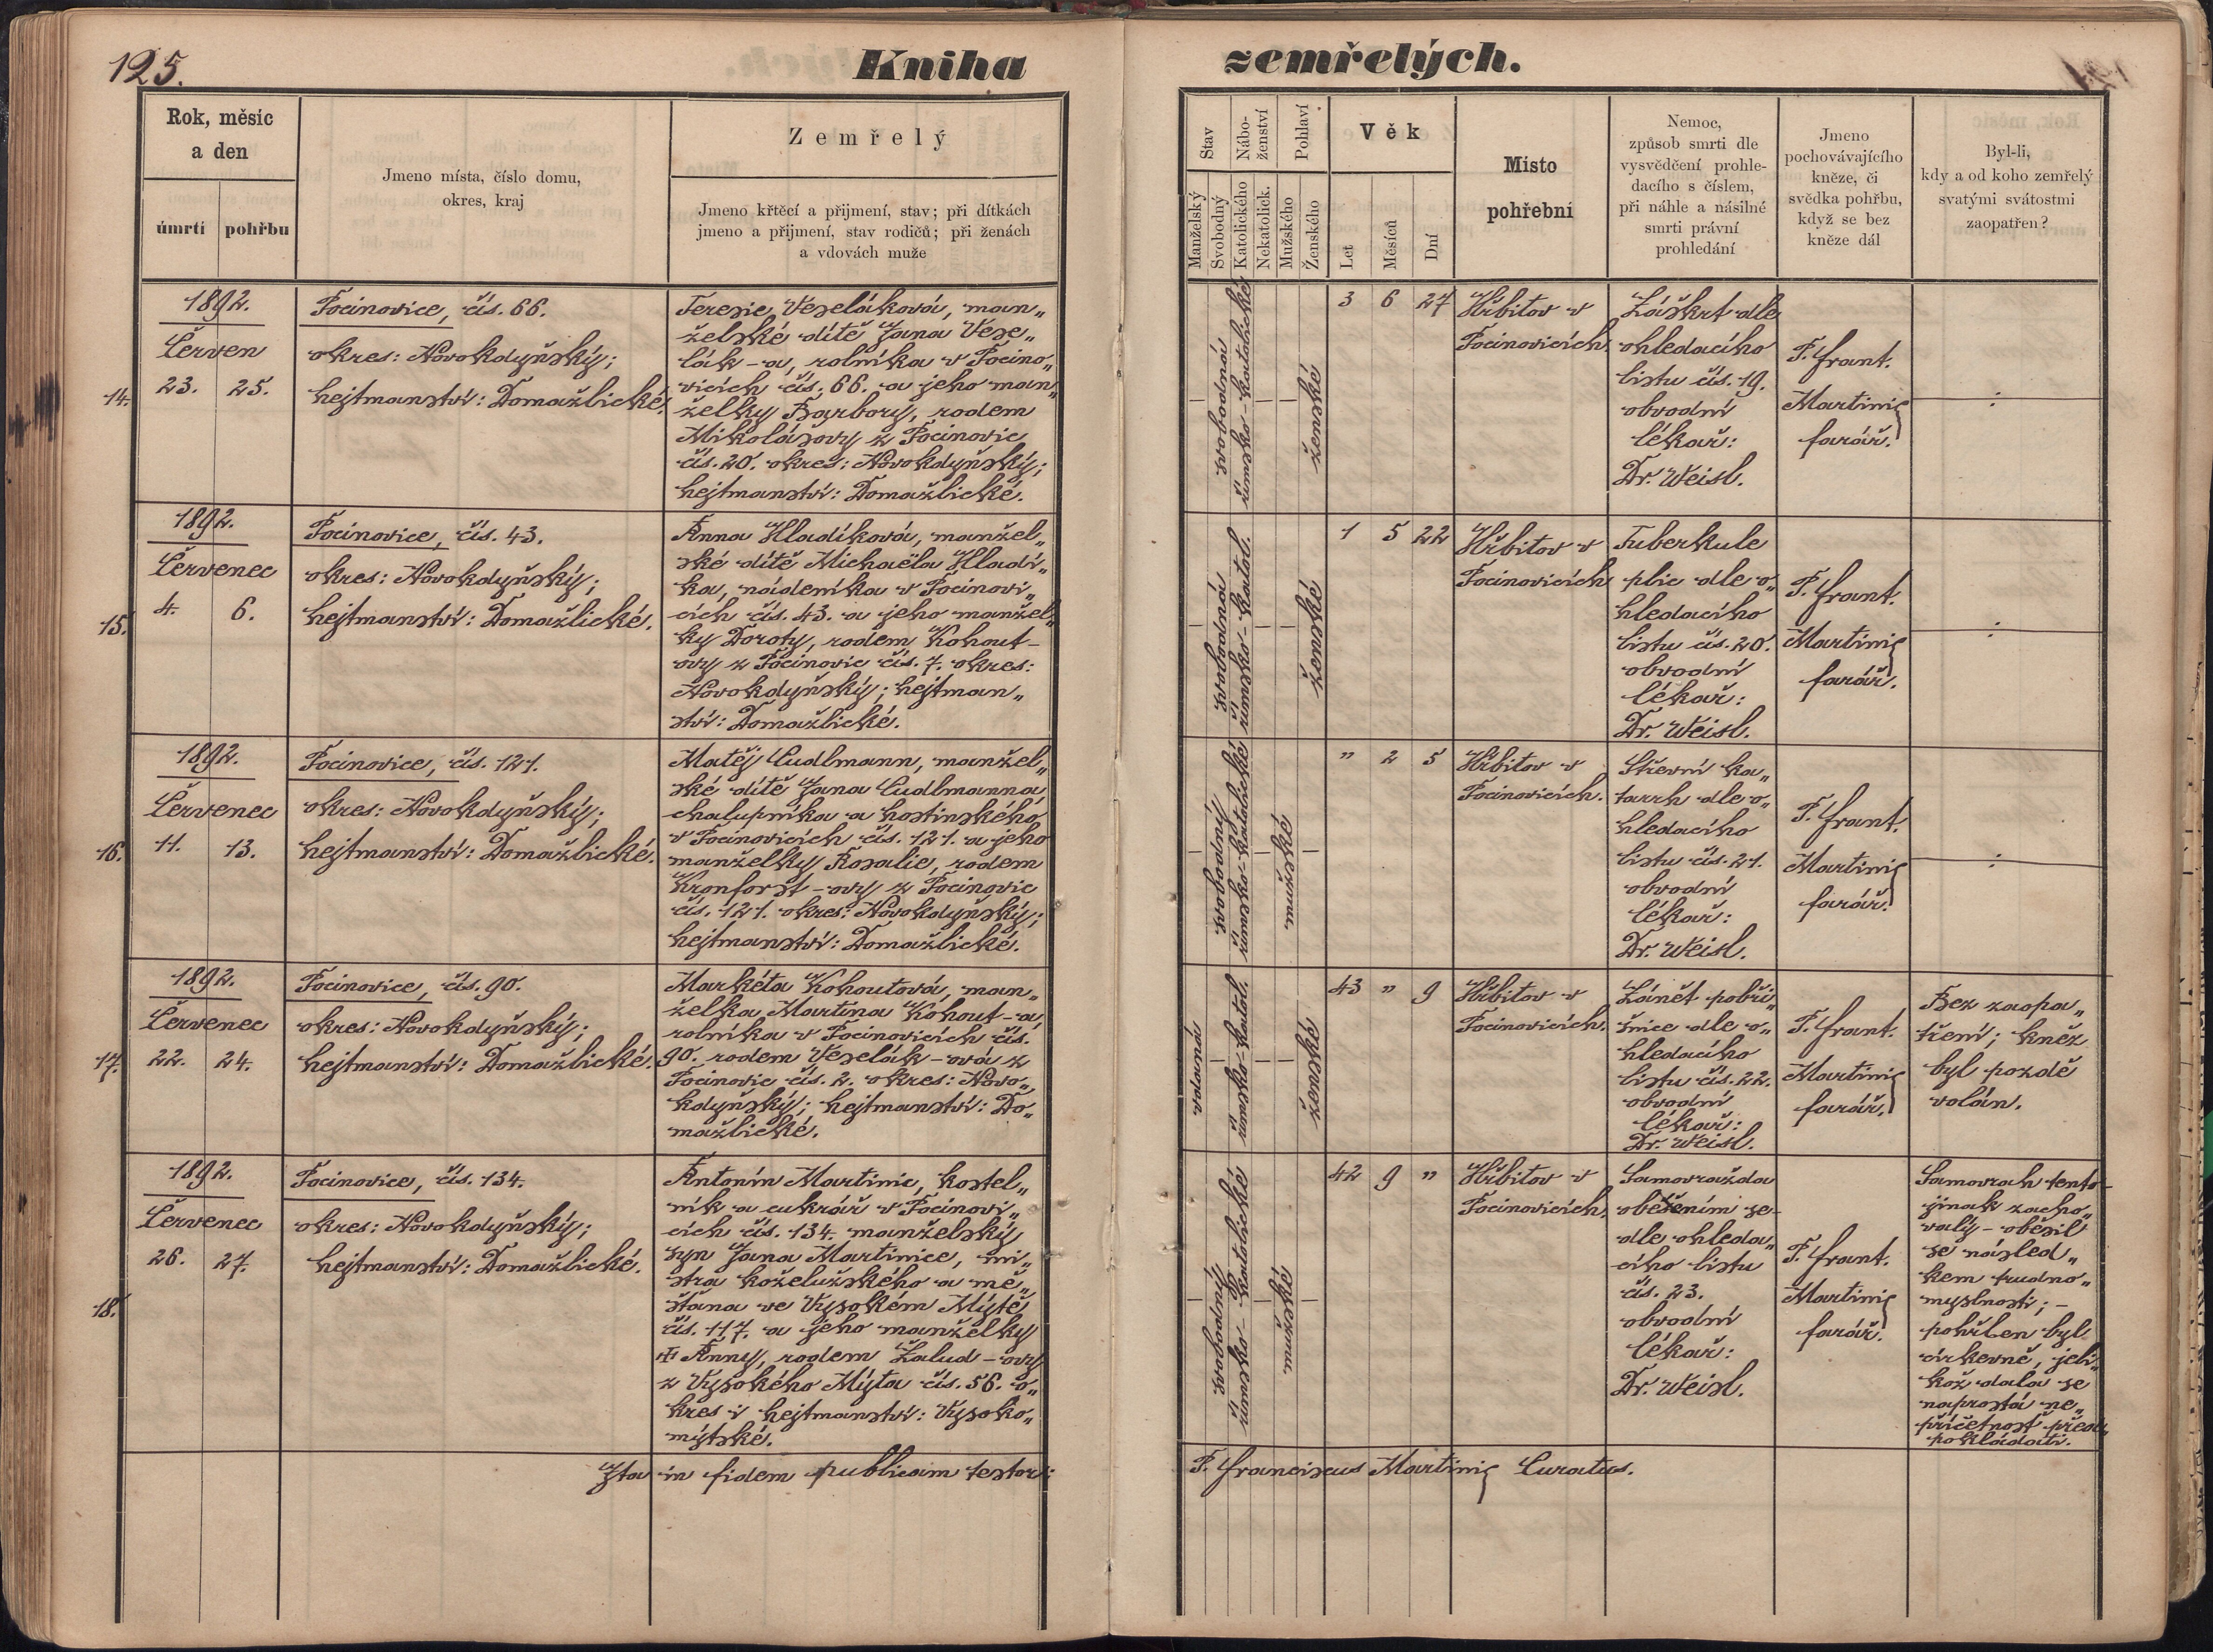 125.
Kniha
zemřelých.
Rok, měsíc
a den
úmrtí
pohřbu
Jmeno místa, číslo domu,
okres, kraj
Zemřelý
Jmeno křtěcí a přijmení, stav; při dítkách
jmeno a přijmení, stav rodičů; při ženách
a vdovách muže
Stav
Manželský
Svobodný
Nábo-
ženství
Katolického
Nekatolick.
Pohlaví
Mužského
Ženského
Věk
Let
Měsíců
Dní
Místo
pohřební
Nemoc,
způsob smrti dle
vysvědčení prohle-
dacího s číslem,
při náhle a násilné
smrti právní
prohledání
Jmeno
pochovávajícího
kněze, či
svědka pohřbu,
když se bez
kněze dál
Byl-li,
kdy a od koho zemřelý
svatými svátostmi
zaopatřen?
14.
1892.
Červen
23. 25.
Pocinovice, čís. 66.
okres: Novokdyňský;
hejtmanství: Domažlické.
Teresie Veseláková, man„
želské dítě Jana Vese„
lák-a, rolníka v Pocino„
vicích čís. 66. a jeho man„
želky Barbory, rodem
Mikolášovy z Pocinovic
čís. 20. okres: Novokdyňský;
hejtmanství: Domažlické.
svobodná
římsko-katolické
ženské
3 6 27
Hřbitov v
Pocinovicích.
Záškrt dle
ohledacího
listu čís. 19.
obvodní
lékař:
Dr. Weisl.
P. Frant.
Martinic
farář.
15.
1892.
Červenec
4. 6.
Pocinovice, čís. 43.
okres: Novokdyňský;
hejtmanství: Domažlické.
Anna Hladíková, manžel„
ské dítě Michaëla Hladí„
ka, nádeníka v Pocinovi„
cích čís. 43. a jeho manžel„
ky Doroty, rodem Kohout-
ovy z Pocinovic čís. 7. okres:
Novokdyňský; hejtman„
ství: Domažlické.
svobodná
římsko-katol.
ženské
1 5 22
Hřbitov v
Pocinovicích
Tuberkule
plic dle o„
hledacího
listu čís. 20.
obvodní
lékař:
Dr. Weisl.
P. Frant.
Martinic
farář.
16.
1892.
Červenec
11. 13.
Pocinovice, čís. 121.
okres: Novokdyňský;
hejtmanství: Domažlické.
Matěj Cudlmann, manžel„
ské dítě Jana Cudlmanna
chalupníka a hostinského
v Pocinovicích čís. 121. a jeho
manželky Rosalie, rodem
Kronforst-ovy z Pocinovic
čís. 121. okres: Novokdyňský;
hejtmanství: Domažlické.
svobodný
římsko-katolické
mužské
„ 2 5
Hřbitov v
Pocinovicích.
Střevní ka„
tarrh dle o„
hledacího
listu čís. 21.
obvodní
lékař:
Dr. Weisl.
P. Frant.
Martinic
farář.
17.
1892.
Červenec
22. 24.
Pocinovice, čís. 90.
okres: Novokdyňský;
hejtmanství: Domažlické.
Markéta Kohoutová, man„
želka Martina Kohout-a,
rolníka v Pocinovicích čís.
90. rodem Veselák-ová z
Pocinovic čís. 2. okres: Novo„
kdyňský; hejtmanství: Do„
mažlické.
vdaná
římsko-katol.
ženské
43 „ 9
Hřbitov v
Pocinovicích.
Zánět pobři„
šnice dle o„
hledacího
listu čís. 22.
obvodní
lékař:
Dr. Weisl.
P. Frant.
Martinic
farář.
Bez zaopa„
tření; kněz
byl pozdě
volán.
18.
1892.
Červenec
26. 27.
Pocinovice, čís. 134.
okres: Novokdyňský;
hejtmanství: Domažlické.
Antonín Martinic, kostel„
ník a cukrář v Pocinovi„
cích čís. 134. manželský
syn Jana Martinice, mi„
stra koželužského a mě„
šťana ve Vysokém Mýtě
čís. 117. a jeho manželky
✠ Anny, rodem Žalud-ovy
z Vysokého Mýta čís. 56. o„
kres i hejtmanství: Vysoko„
mýtské.
svobodný
římsko-katolické
mužské
42 9 „
Hřbitov v
Pocinovicích.
Samovražda
oběšením se
dle ohleda„
cího listu
čís. 23.
obvodní
lékař:
Dr. Weisl.
P. Frant.
Martinic
farář.
Samovrah tento-
jinak zacho„
valý - oběsil
se násled„
kem trudno„
myslnosti; -
pohřben byl
církevně, jeli„
kož dala se
naprostá ne„
příčetnost před„
pokládati.
Ita in fidem publicam testor:
P. Franciscus Martinic Curatus.